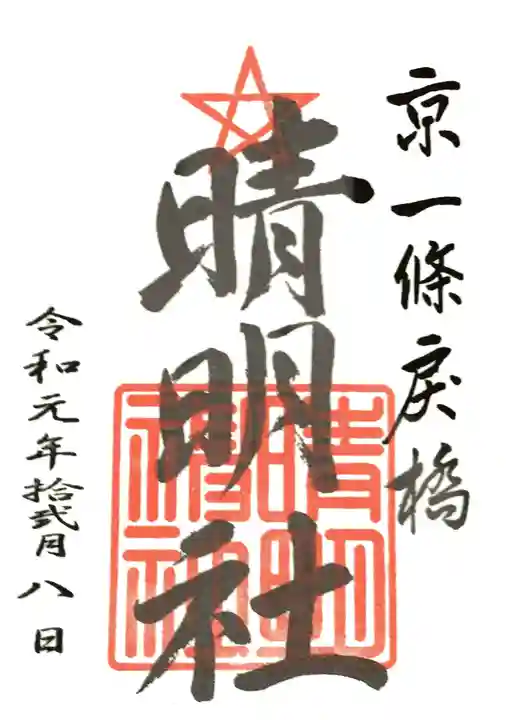 京一條戻橋
晴明社
晴明
神社
令和元年拾弐月八日